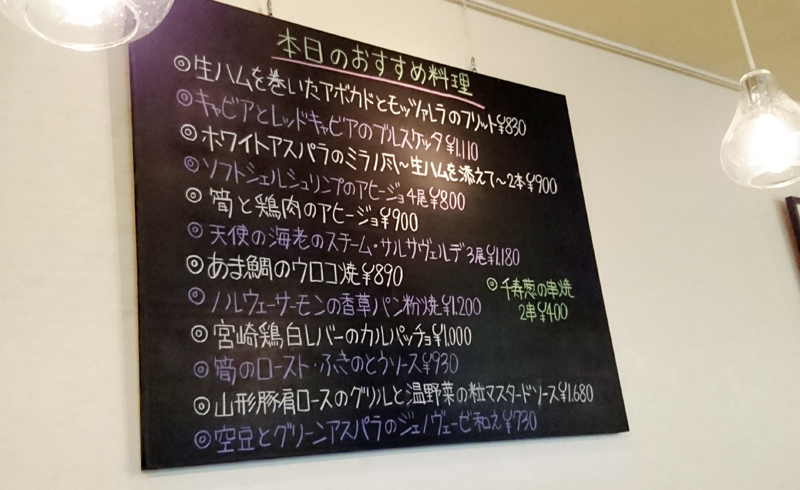 本日のおすすめ料理
◎生ハムを巻いたアボカドとモッツァレラのフリット¥830
◎キャビアとレッドキャビアのブルスケッタ¥1.110
◎ホワイトアスパラのミラノ風～生ハムを添えて～2本¥900
◎ソフトシェルシュリンプのアヒージョ4尾¥800
◎筍と鶏肉のアヒージョ¥900
◎天使の海老のスチーム・サルサヴェルデ3尾¥1.180
◎あま鯛のウロコ焼¥890
◎千寿葱の串焼
2串¥400
◎ノルウェーサーモンの香草パン粉焼¥1.200
◎宮崎鶏白レバーのカルパッチョ¥1.000
◎筍のロースト・ふきのとうソース¥930
◎山形豚肩ロースのグリルと温野菜の粒マスタードソース¥1.680
◎空豆とグリーンアスパラのジェノヴェーゼ和え¥730